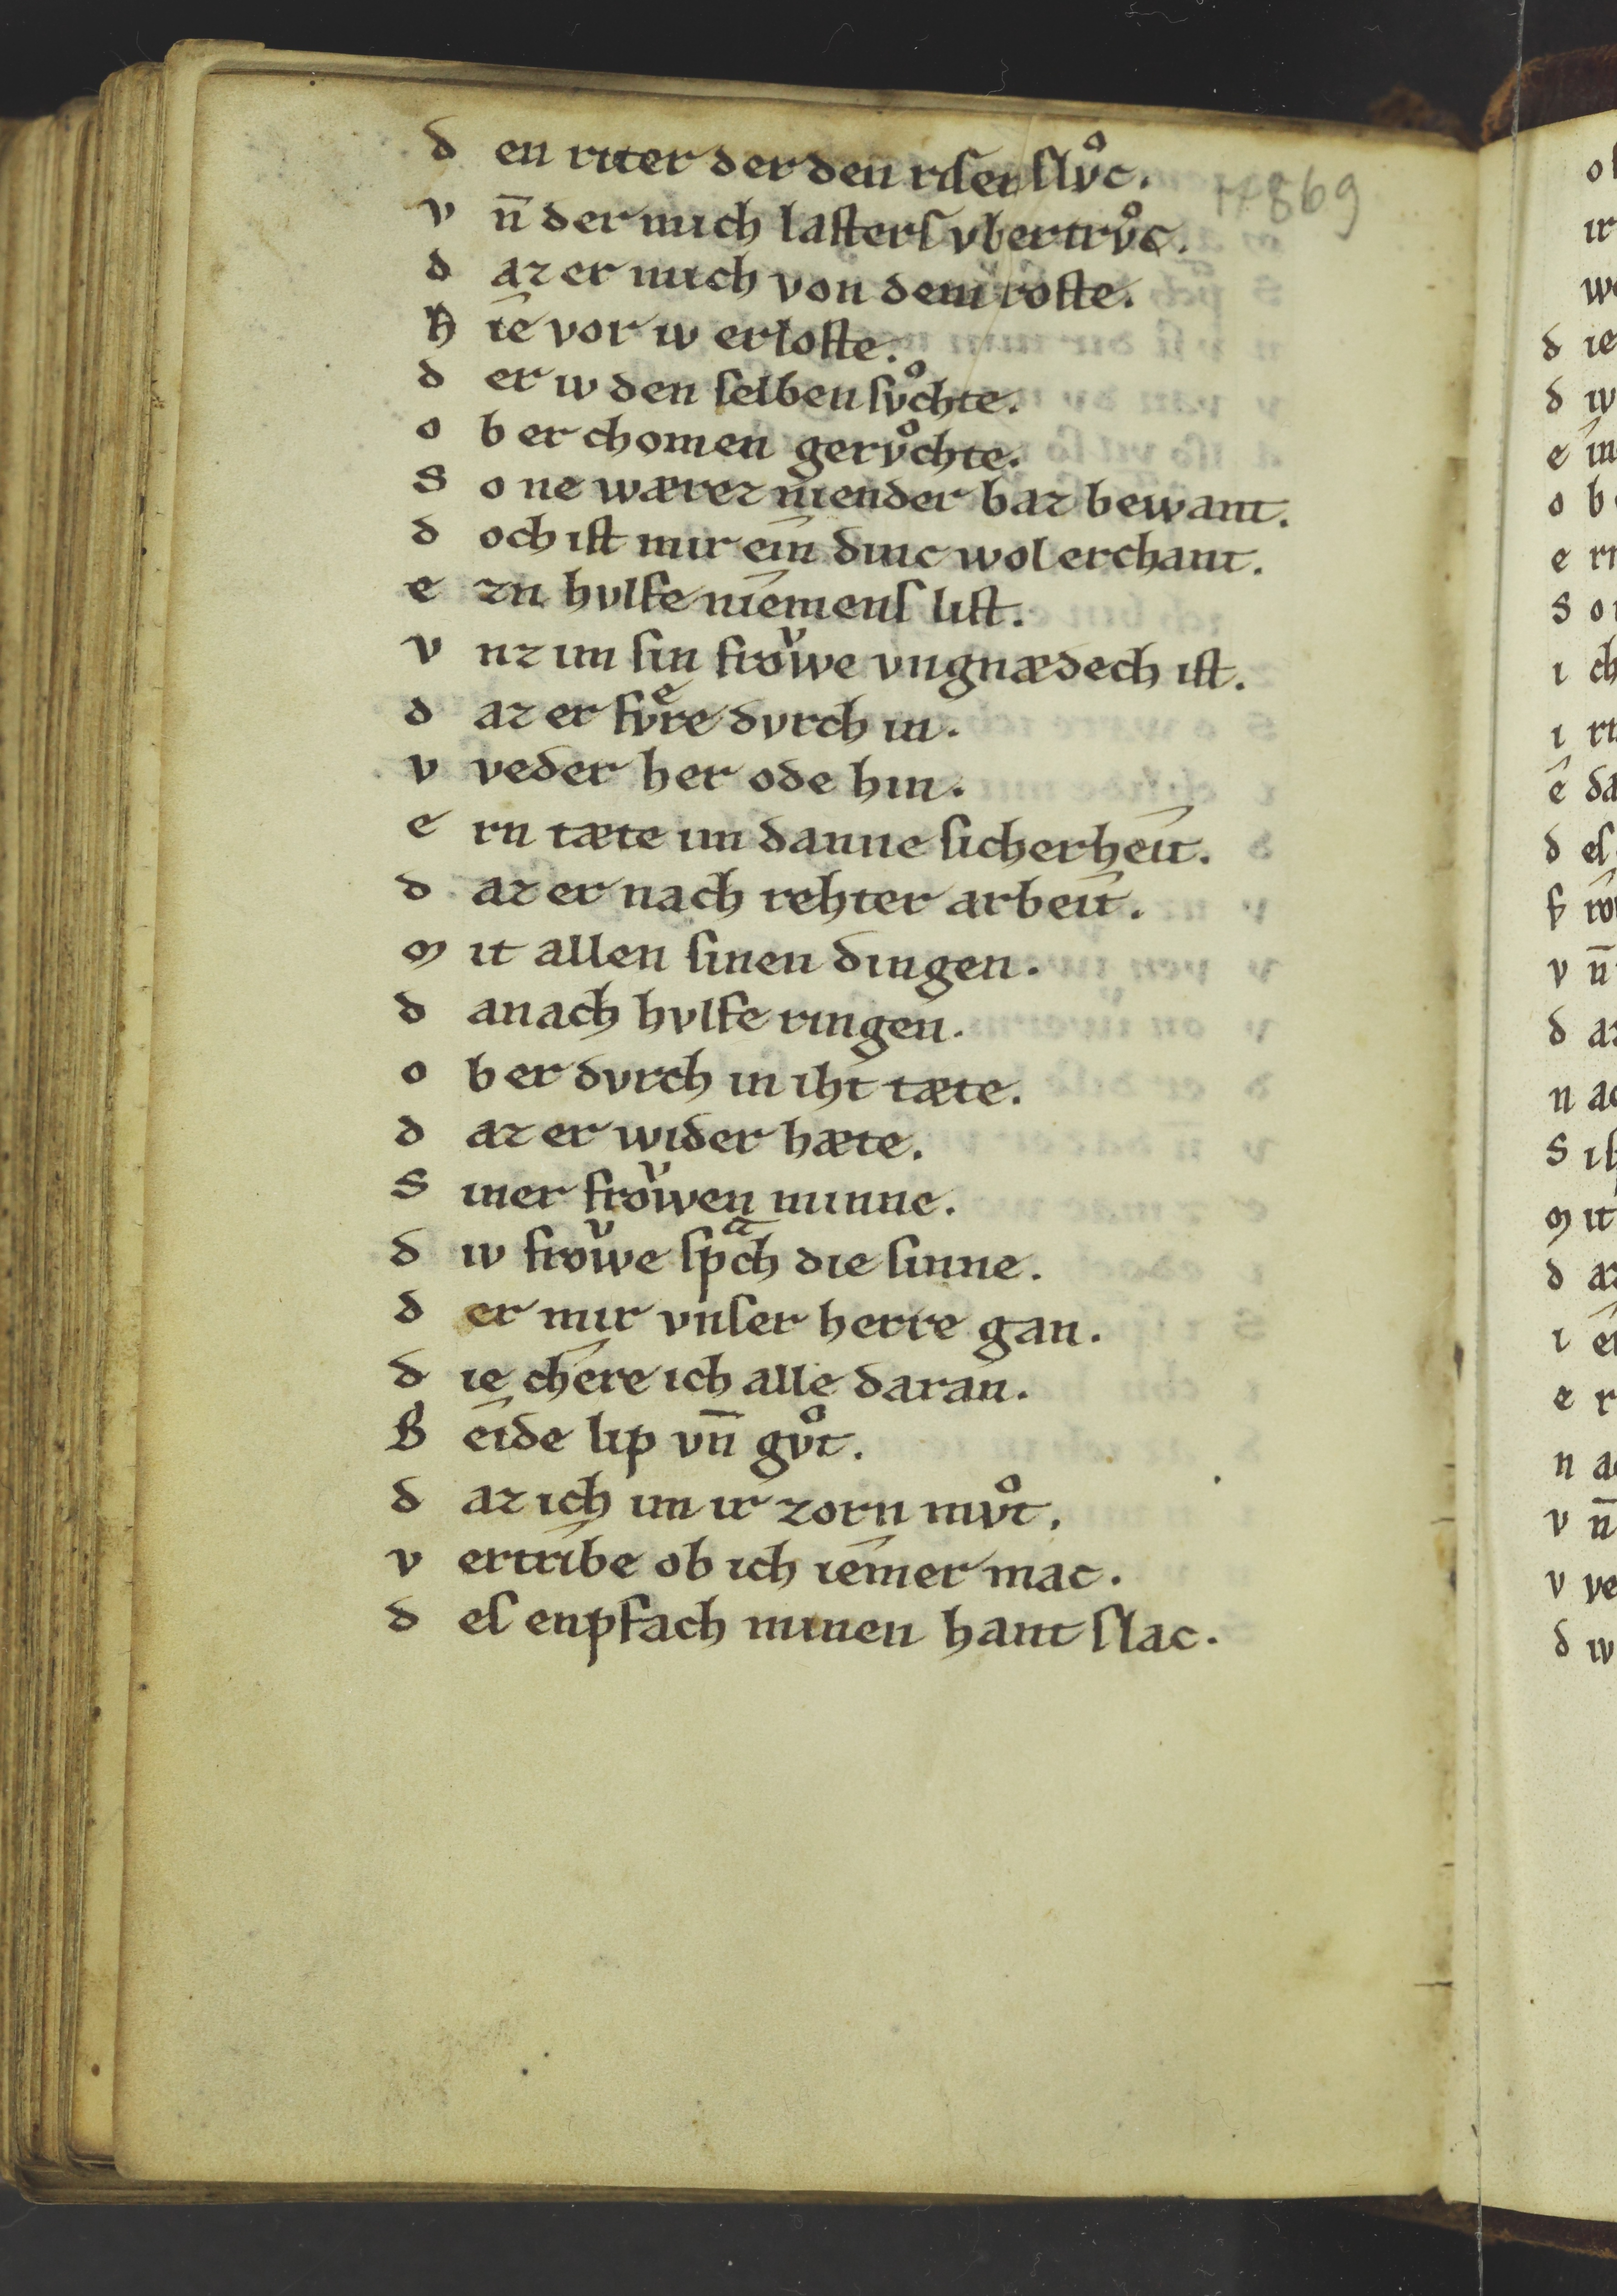 d en riter der den risen slvͦc.
17869
v n̄ der mich lasters vbertrvͦc.
d az er mich von dem roste.
h ie vor iv erloste.
d er iv den selben svͦchte.
o b er chomen gervͦchte.
S o ne wærez niender baz bewant.
d och ist mir ein dinc wol erchant.
e zn hvlfe niemens list.
v nz im sin froͮwe vngnædech ist.
d az er fvͤre dvrch in.
v veder her ode hin.
e rn tæte im danne sicherheit.
d az er nach rehter arbeit.
m it allen sinen dingen.
d anach hvlfe ringen.
o b er dvrch in iht tæte.
d az er wider hæte.
S iner froͮwen minne.
d iv froͮwe spͣch die sinne.
d er mir vnser herre gan.
d ie chere ich alle daran.
B eide lip vn̄ gvͦt.
d az ich im ir zorn mvͦt.
v ertribe ob ich iemer mac.
d es enpfach minen hant slac.